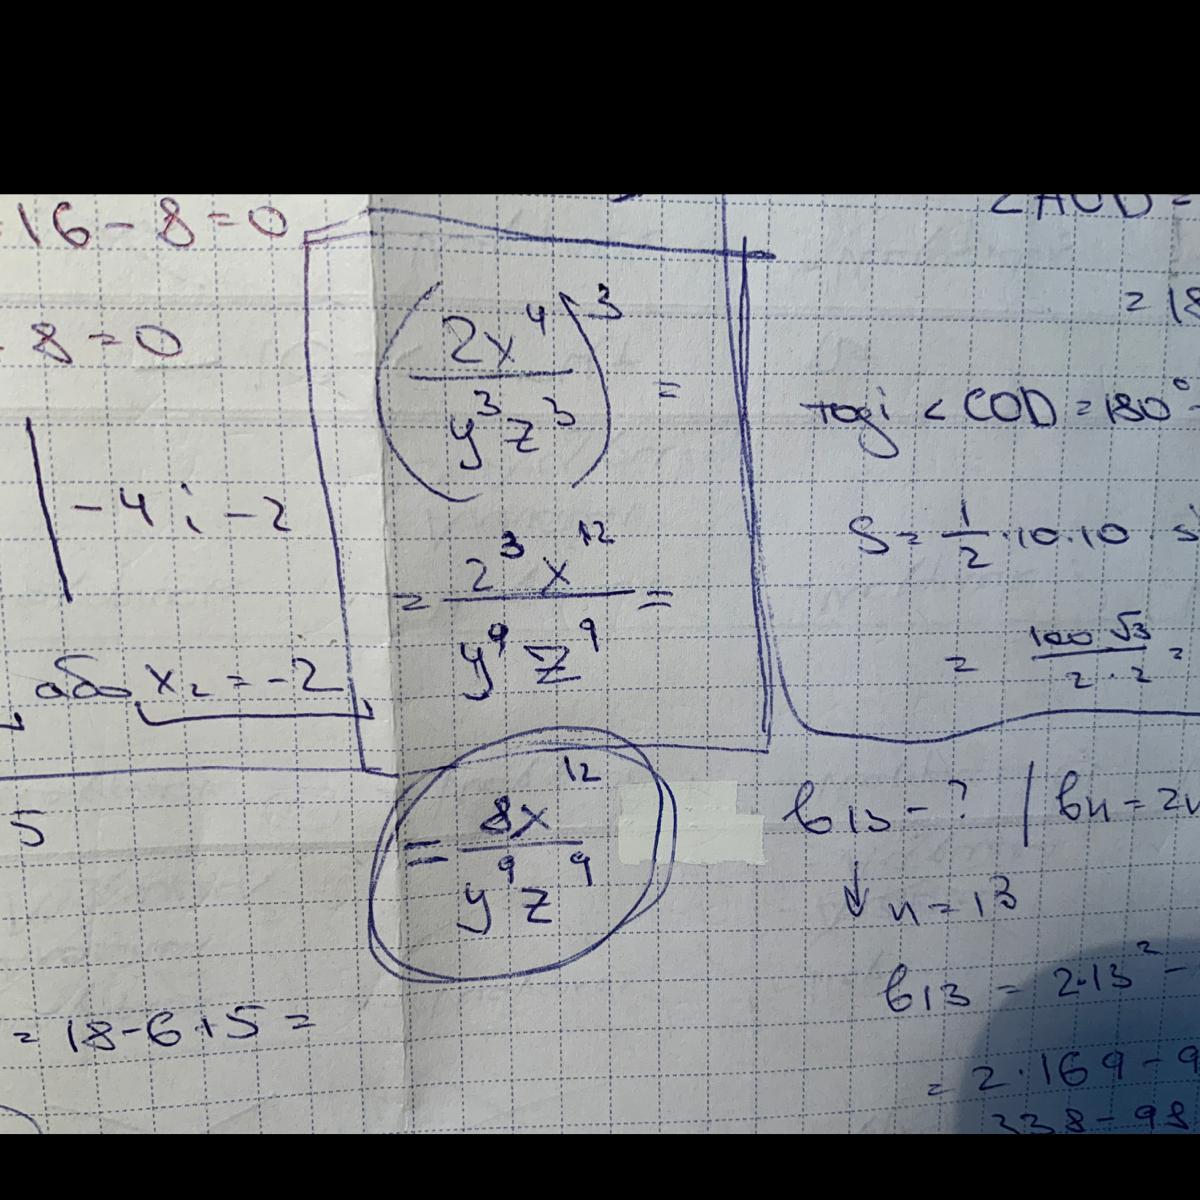 16 - 8 = 0
8 = 0
-4 ; -2
або x₂ = -2
5
= 18 - 6 + 5 =
(2x⁴ / y³z³)³ =
= 2³x¹² / y⁹z⁹ =
= 8x¹² / y⁹z⁹
= 18
тоді < COD = 180°
S = 1/2 · 10 · 10 · si
= 100√3 / 2 · 2 =
b₁₃ - ? | bn = 2n
↓ n = 13
b₁₃ = 2·13² -
= 2·169 - 9
338 - 98